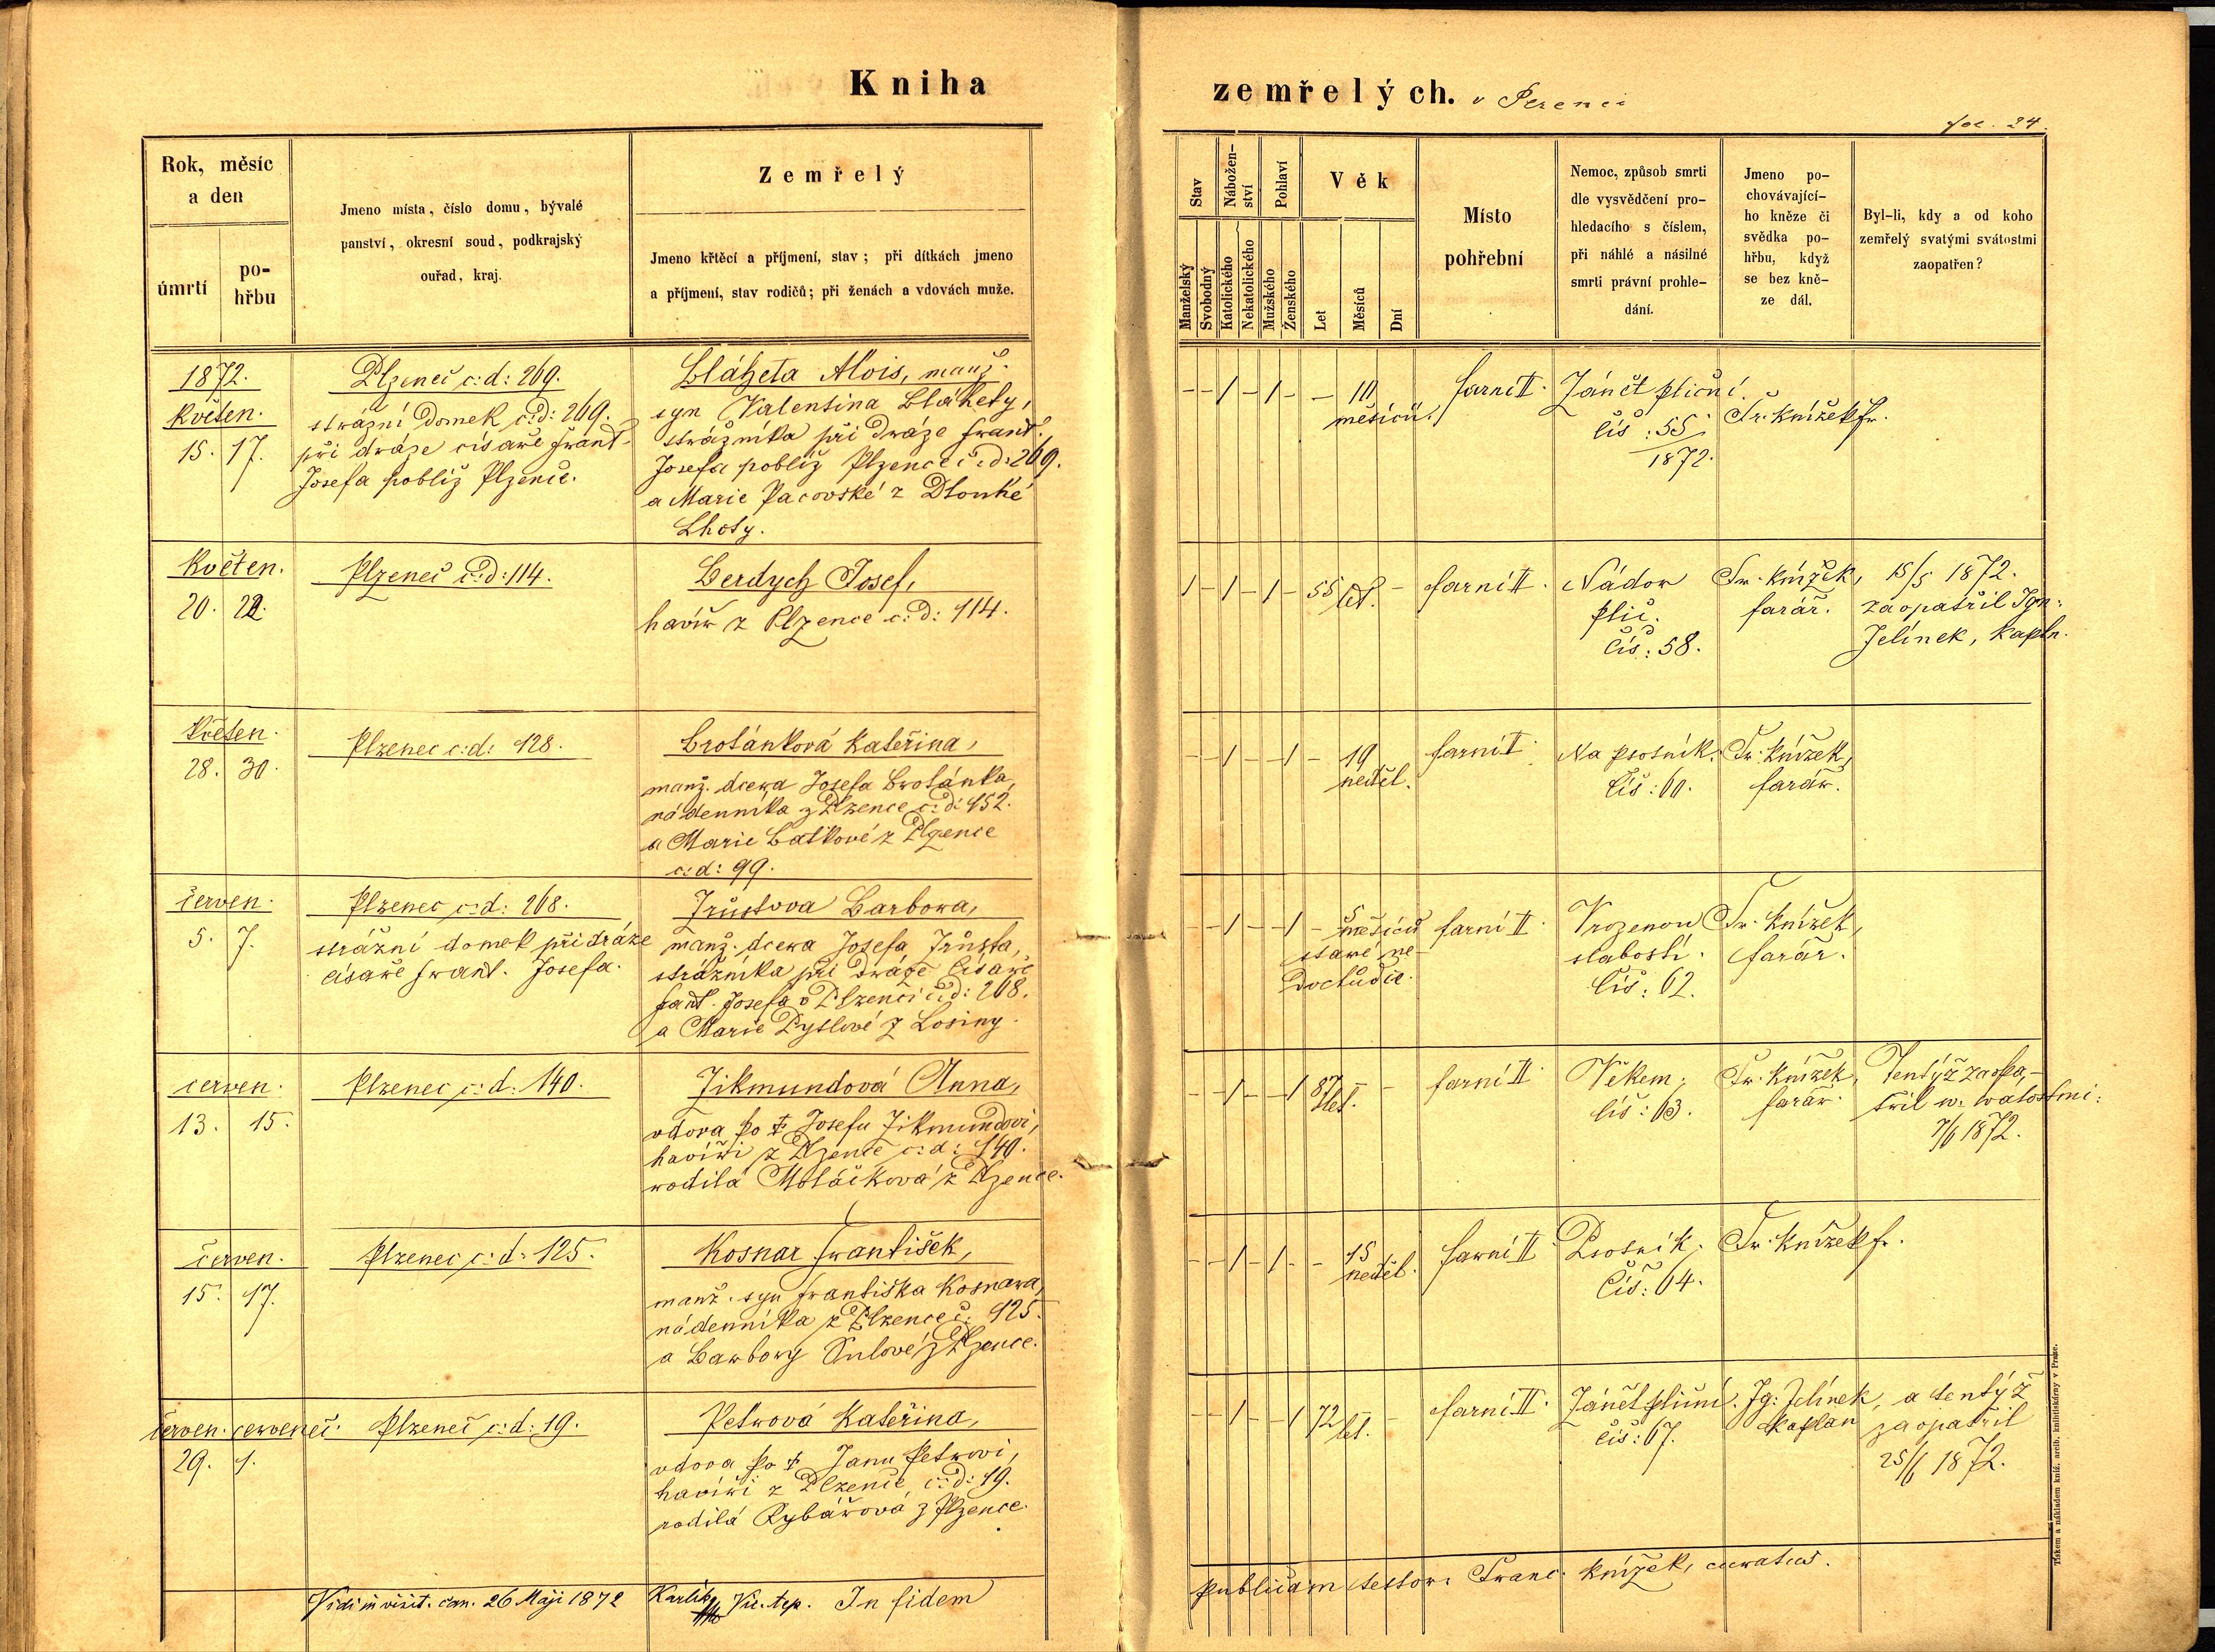 Kniha
zemřelých. v Plzenci
fol. 24.
Rok, měsíc
a den
úmrtí
po-
hřbu
Jmeno místa, číslo domu, bývalé
panství, okresní soud, podkrajský
ouřad, kraj.
Zemřelý
Jmeno křtěcí a příjmení, stav; při dítkách jmeno
a příjmení, stav rodičů; při ženách a vdovách muže.
Stav
Manželský
Svobodný
Nábožen-
ství
Katolického
Nekatolického
Pohlaví
Mužského
Ženského
Věk
Let
Měsíců
Dní
Místo
pohřební
Nemoc, způsob smrti
dle vysvědčení pro-
hledacího s číslem,
při náhlé a násilné
smrti právní prohle-
dání.
Jmeno po-
chovávající-
ho kněze či
svědka po-
hřbu, když
se bez kně-
ze dál.
Byl-li, kdy a od koho
zemřelý svatými svátostmi
zaopatřen?
1872.
Květen.
15. 17.
Plzeneč c: d: 269.
strážní domek č: d: 269.
při dráze císaře Frant.
Josefa poblíž Plzence.
Bláheta Alois, manž.
syn Valentina Bláhety,
strážníka při dráze Frant.
Josefa poblíž Plzence č: d: 269.
a Marie Pacovské z Dlouhé
Lhoty.
- - 1 - 1 - - 10
měsíců.
farní II.
Zánět plicní.
čís: 55
1872.
Fr. Knížek fr.
Květen.
20. 22.
Plzeneč č: d: 114.
Berdych Josef,
havíř z Plzence c: d: 114.
1 - 1 - 1 - 55 let. -
farní II.
Nádor
plic.
čís: 58.
Fr. Knížek,
farář.
15/5 1872.
zaopatřil Ign:
Jelínek, kapln.
Květen.
28. 30.
Plzenec c: d: 128.
Brotánková Kateřina,
manž. dcera Josefa Brotánka,
nádenníka z Plzence c: d: 152.
a Marie Baťkové z Plzence
c: d: 99.
- - 1 - - 1 - 19
neděl.
farní II.
Na psotník.
Čís: 60.
Fr. Knížek,
farář.
červen.
5. 7.
Plzenec c: d: 268.
strážní domek při dráze
císaře Frant. Josefa.
Trůstova Barbora,
manž. dcera Josefa Trůsta,
strážníka při dráze císaře
Fant. Josefa v Plzenci č: d: 268.
a Marie Pytlové z Losiny.
- - 1 - - 1 - 5
měsíců
staré ne-
dochůdče.
farní II.
Vrozenou
slabostí.
Čís: 62.
Fr. Knížek,
farář.
červen.
13. 15.
Plzenec c: d: 140.
Zikmundová Anna,
vdova po † Josefu Zikmundovi,
havíři z Plzence c: d: 140.
rodilá Moláčková z Plzence.
- - 1 - - 1 87 let. - -
farní II.
Věkem.
čís: 63.
Fr. Knížek,
farář.
Tentýž zaopa-
třil
7/6 1872.
červen.
15. 17.
Plzenec c: d: 125.
Kosnar František,
manž. syn Františka Kosnara,
nádenníka z Plzence č. 125.
a Barbory Šulové z Plzence.
- - 1 - 1 - - 15
neděl.
farní II.
Psotník.
Čís: 64.
Fr. Knížek fr.
červen. červenec.
29. 1.
Plzeneč c: d: 19.
Petrová Kateřina,
vdova po † Janu Petrovi,
havíři z Plzence, č: d: 19.
rodilá Rybářová z Plzence.
- - 1 - - 1 72 let. - -
farní II.
Zánět plicní.
čís: 67.
Ig: Jelínek,
kaplan
a tentýž
zaopatřil
25/6 1872.
Vidi in visit. can. 26 Maji 1872 Karlík, Vic. In fidem
publicam testor. Franc. Knížek, curatus.
Tiskem a nákladem kníž. arcib. knihtiskárny v Praze.